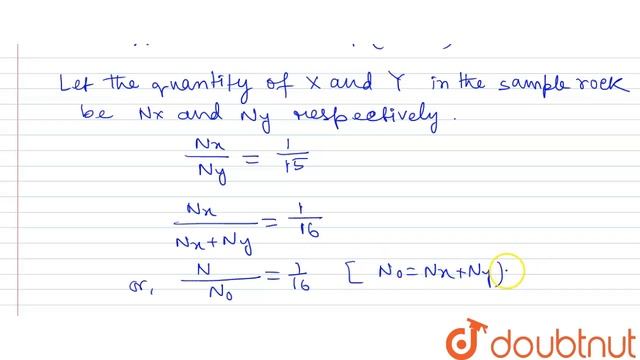 Let the quantity of X and Y in the sample rock
be Nx and Ny respectively.
Nx/Ny = 1/15
Nx/(Nx+Ny) = 1/16
or, N/N₀ = 1/16 [N₀=Nx+Ny).
doubtnut